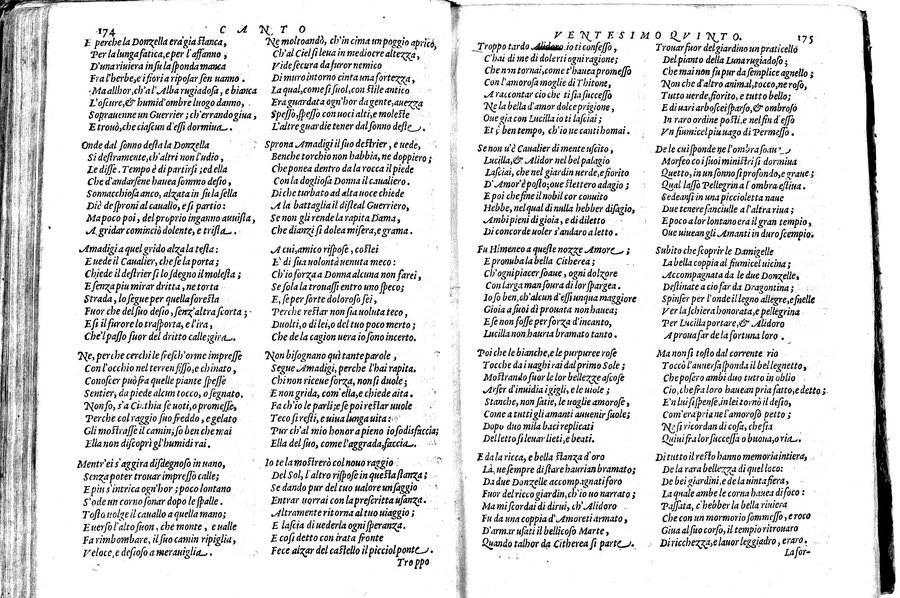 174
CANTO
E perche la Donzella era già stanca,
Per la lunga fatica, e per l'affanno,
D'una riviera in su la sponda manca
Fra l'herbe, e i fiori a riposar sen vanno.
Ma allhor, ch'al'Alba rugiadosa, e bianca
L'oscure, & humid'ombre luogo danno,
Sopravenne un Guerrier; ch'errando giua,
E trouò, che ciascun d'essi dormiua.
Onde dal sonno desta la Donzella
Si destramente, ch'altri non l'udio,
Le disse. Tempo è di partirsi; ed ella
Che d'andarsene haueа sommo desio,
Sonnacchiosa anco, alzata in su la sella
Diè de sproni al cauallo, e si partio:
Ma poco poi, del proprio inganno auuista,
A gridar cominciò dolente, e trista.
Amadigi a quel grido alza la testa:
E uede il Caualier, che se la porta;
Chiede il destrier si lo sdegno il molesta;
E senza piu mirar dritta, ne torta
Strada, lo segue per quella foresta
Fuor che del suo desio, senz'altra scorta;
E si il furore lo trasporta, e l'ira,
Che'l passo fuor del dritto calle gira.
Ne, perche cerchi le fresch'orme impresse
Con l'occhio nel terren fisso, e chinato,
Conoscer può fra quelle piante spesse
Sentier, da piede alcun tocco, o segnato.
Non so, s'a Cinthia fe uoti, o promesse,
Perche col raggio suo freddo, e gelato
Gli mostrasse il camin; so ben che mai
Ella non discoprì gl'humidi rai.
Mentr'ei s'aggira disdegnoso in uano,
Senza poter trouar impresso calle;
E piu s'intrica ogn'hor; poco lontano
S'ode un corno sonar dopo le spalle.
Tosto uolge il cauallo a quella mano;
E uerso l'alto suon, che monte, e ualle
Fa rimbombare, il suo camin ripiglia,
Veloce, e desioso a merauiglia.
Ne molto andò, ch'in cima un poggio aprico,
Ch'al Ciel si leua in mediocre altezza,
Vide secura da furor nemico
Di muro intorno cinta una fortezza,
La qual, come si suol, con stile antico
Era guardata ogn'hor da gente, auezza
Spesso, spesso con uoci alti, e moleste
L'altre guardie tener dal sonno deste.
Sprona Amadigi il suo destrier, e uede,
Benche torchio non habbia, ne doppiero;
Che ponea dentro da la rocca il piede
Con la dogliosa Donna il caualiero.
Di che turbato ad alta uoce chiede
A la battaglia il disleal Guerriero,
Se non gli rende la rapita Dama,
Che dianzi si dolea misera, e grama.
A cui, amico rispose, costei
E' di sua volontà uenuta meco:
Ch'io forza a Donna alcuna non farei,
Se sola la trouassi entro uno speco;
E, se per forte doloroso sei,
Perche restar non sia uoluta teco,
Duolti, o di lei, o del tuo poco merto;
Che de la cagion uera io sono incerto.
Non bisognano quì tante parole,
Segue Amadigi, perche l'hai rapita.
Chi non riceue forza, non si duole;
E non grida, com'ella, e chiede aita.
Fa ch'io le parli; se poi restar uuole
Teco si resti, e uiua lunga uita:
Pur ch'al mio honor a pieno io sodisfaccia;
Ella del suo, come l'aggrada, faccia.
Io te la mostrerò col nouo raggio
Del Sol, l'altro rispose in questa stanza;
Se dando pur del tuo ualore un saggio
Entrar uorrai con la prescritta usanza.
Altramente ritorna al tuo uiaggio;
E lascia di uederla ogni speranza.
E così detto con irata fronte
Fece alzar del castello il picciol ponte.
Troppo
VENTESIMOQVINTO.
175
Troppo tardo Alidoro, io ti confesso,
C'hai di me di dolerti ogni ragione;
Che non tornai, come t'hauea promesso
Con l'amorosa moglie di Thitone,
A raccontar cio che ti sia successo
Ne la bella d'amor dolce prigione,
Oue già con Lucilla io ti lasciai;
Et è ben tempo, ch'io ne canti homai.
Se non u'è Caualier di mente uscito,
Lucilla, & Alidor nel bel palagio
Lasciai, che nel giardin uerde, e fiorito
D'Amor è posto; oue stettero adagio;
E poi che fine il nobil cor conuito
Hebbe, nel qual di nulla hebber disagio,
Ambi pieni di gioia, e di diletto
Di concorde uoler s'andaro a letto.
Fu Himeneo a queste nozze Amore;
E pronuba la bella Citherea;
Ch'ogni piacer soaue, ogni dolzore
Con larga man soura di lor spargea.
Io so ben, ch'alcun d'essi unqua maggiore
Gioia a suoi dì prouata non hauea;
E se non fosse per forza d'incanto,
Lucilla non hauria bramato tanto.
Poi che le bianche, e le purpuree rose
Tocche da i uaghi rai dal primo Sole;
Mostrando fuor le lor bellezze ascose
Arser d'inuidia i gigli, e le uiole;
Stanche, non satie, le uoglie amorose,
Come a tutti gli amanti auuenir suole;
Dopo duo mila baci replicati
Del letto si leuar lieti, e beati.
E da la ricca, e bella stanza d'oro
Là, ue sempre di stare haurian bramato;
Da due Donzelle accompagnati foro
Fuor del ricco giardin, ch'io uo narrato;
Ma mi scordai di dirui, ch'Alidoro
Fu da una coppia d'Amoreti armato,
D'armar usati il bellicoso Marte,
Quando talhor da Citherea si parte.
Trouar fuor del giardino un praticello
Del pianto della Luna rugiadoso;
Che mai non fu pur da semplice agnello;
Non che d'altro animal, tocco, ne roso,
Tutto uerde, fiorito, e tutto bello;
E di uari arboscei sparso, & ombroso
In raro ordine posti, e nel fin d'esso
Vn fiumicel piu uago di Permesso.
De le cui sponde ne l'ombroso
Morfeo co i suoi ministri si dormiua
Quetto, in un sonno si profondo, e graue;
Qual lasso Pellegrin a l'ombra estiua.
Sedeansi in una piccioletta naue
Due tenere fanciulle a l'altra riua;
E poco a lor lontano era il gran tempio,
Oue uiuean gli Amanti in duro scempio.
Subito che scoprir le Damigelle
La bella coppia al fiumicel uicina;
Accompagnata da le due Donzelle,
Destinate a cio far da Dragontina;
Spinser per l'onde il legno allegre, e snelle
Ver la schiera honorata, e pellegrina
Per Lucilla portare, & Alidoro
A proua far de la fortuna loro.
Ma non sì tosto dal corrente rio
Toccò l'auuersa sponda il bel legnetto,
Che posero ambi duo tutto in oblio
Cio, che fra loro hauean pria fatto, e detto;
E'n lui si spense, in lei tornò il desio,
Com'era pria ne l'amoroso petto;
Ne si ricordan di cosa, che sia
Quiui fra lor successa o buona, o ria.
Di tutto il resto hanno memoria intiera,
De la rara bellezza di quel loco:
De bei giardini, e de la uinta fiera,
La quale ambe le corna hauea di foco:
Passata, c'hebber la bella riviera
Che con un mormorio sommesso, e roco
Giua al suo corso, il tempio ritrouaro
Di ricchezza, e lauor leggiadro, e raro.
La for-